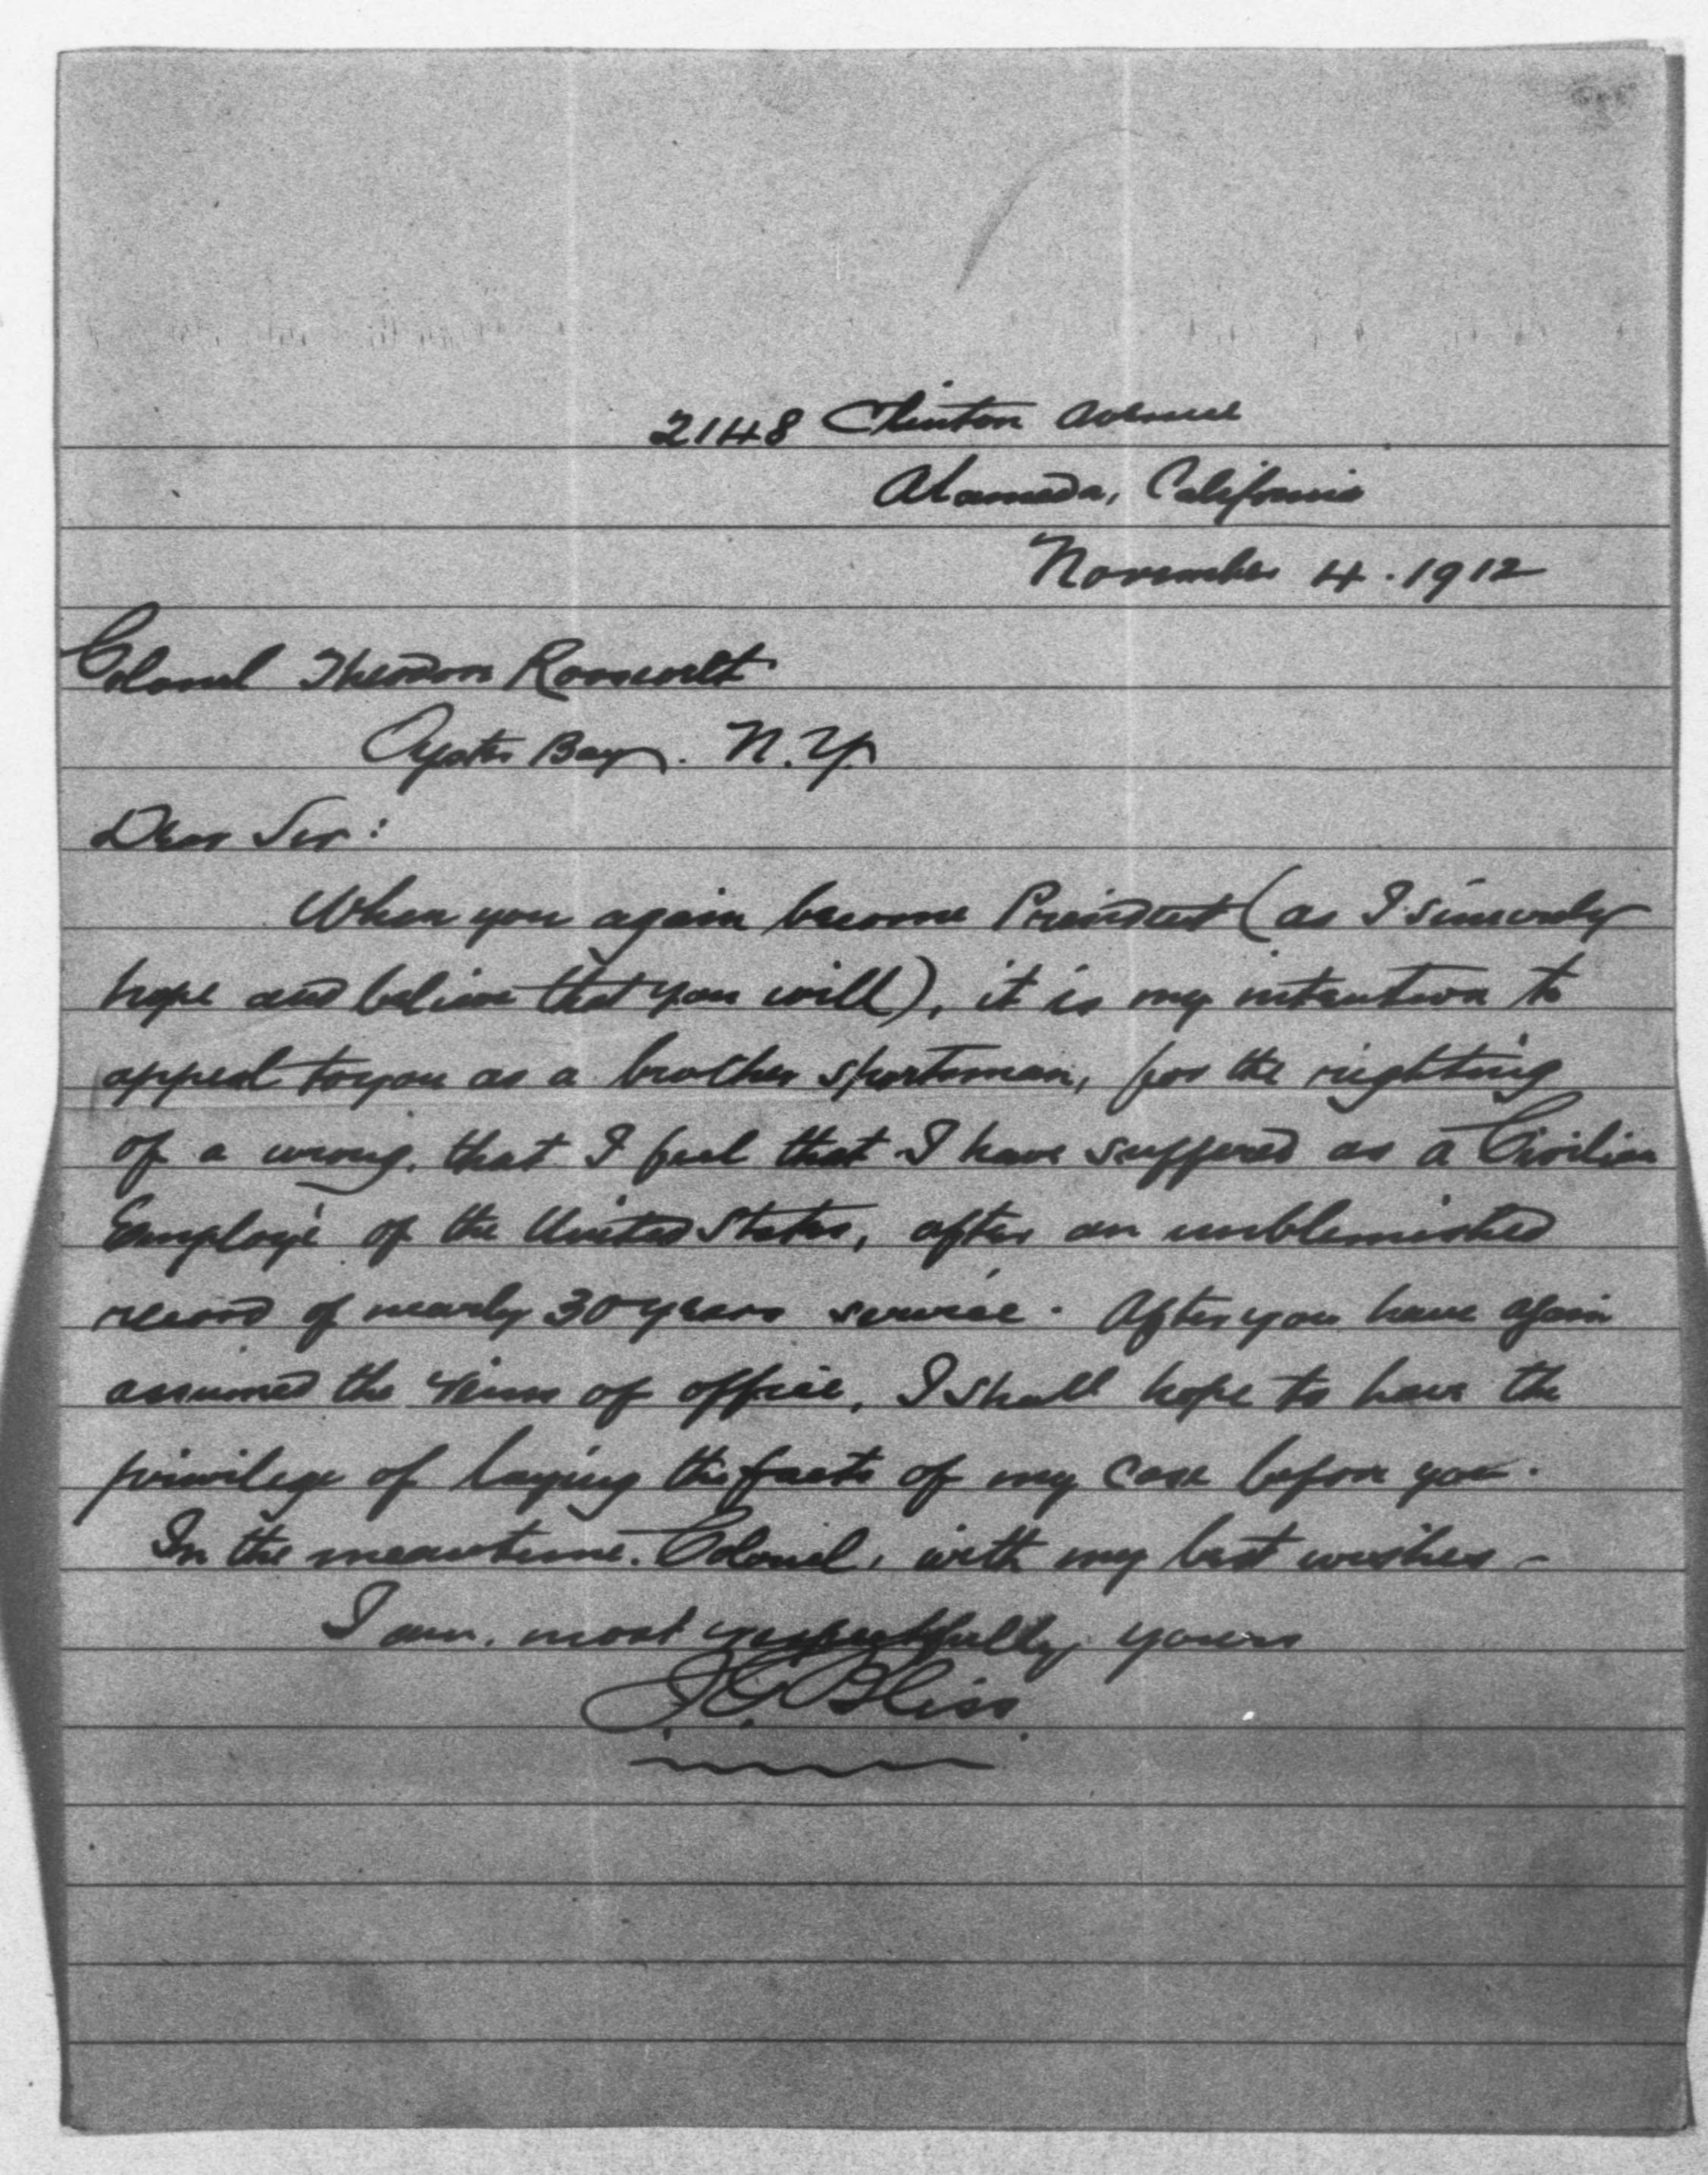 2148 Clinton Avenue
Alameda, California
November 4. 1912
Colonel Theodore Roosevelt
Oyster Bay. N.Y.
Dear Sir:
When you again become President (as I sincerely
hope and believe that you will), it is my intention to
appeal to you as a brother sportsman, for the righting
of a wrong. that I feel that I have suffered as a Civilian
Employé of the United States, after an unblemished
record of nearly 30 years service. After you have again
assumed the reins of office, I shall hope to have the
privilege of laying the facts of my case before you.
In the meantime. Colonel, with my best wishes -
I am. most respectfully yours
J.G. Bliss.